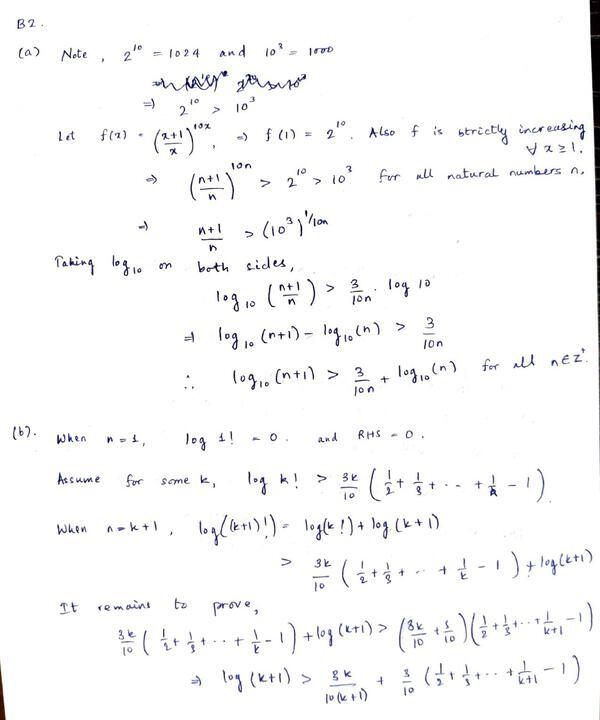 B2.
(a) Note, 2^10 = 1024 and 10^3 = 1000
⇒ 2^10 > 10^3
Let f(x) = ((x+1)/x)^10x, ⇒ f(1) = 2^10. Also f is strictly increasing ∀ x ≥ 1.
⇒ ((n+1)/n)^10n > 2^10 > 10^3 for all natural numbers n.
⇒ (n+1)/n > (10^3)^1/10n
Taking log_10 on both sides,
log_10 ((n+1)/n) > 3/10n . log 10
⇒ log_10 (n+1) - log_10 (n) > 3/10n
∴ log_10 (n+1) > 3/10n + log_10 (n) for all n ∈ Z^+.
(b). When n = 1, log 1! = 0. and RHS = 0.
Assume for some k, log k! > 3k/10 (1/2 + 1/3 + .. + 1/k - 1)
When n = k+1, log((k+1)!) = log(k!) + log (k+1)
> 3k/10 (1/2 + 1/3 + .. + 1/k - 1) + log(k+1)
It remains to prove,
3k/10 (1/2 + 1/3 + .. + 1/k - 1) + log (k+1) > (3k/10 + 3/10)(1/2 + 1/3 + .. + 1/(k+1) - 1)
⇒ log (k+1) > 3k/10(k+1) + 3/10 (1/2 + 1/3 + .. + 1/(k+1) - 1)